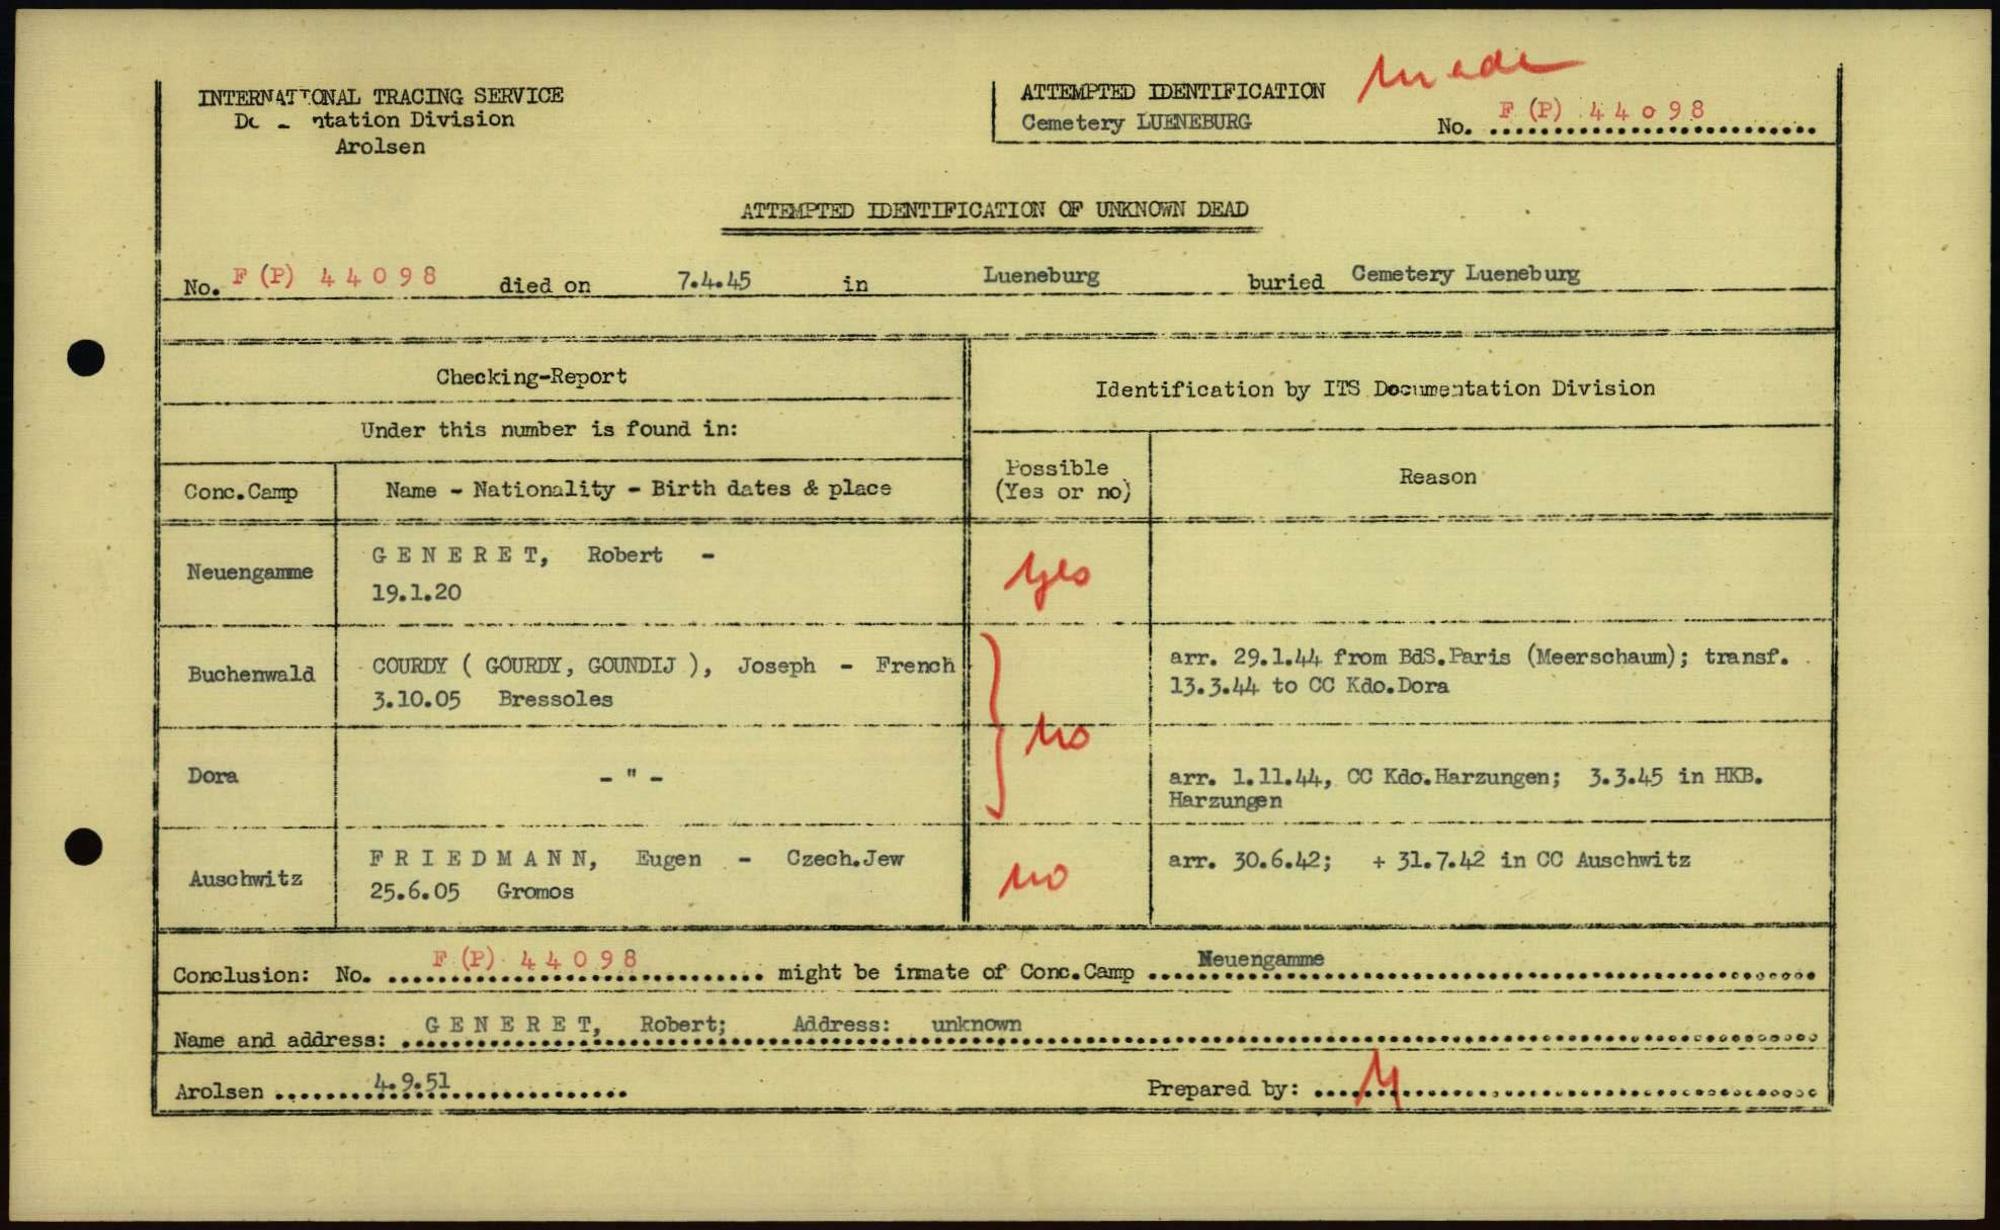 INTERNATIONAL TRACING SERVICE
Documentation Division
Arolsen
ATTEMPTED IDENTIFICATION made
Cemetery LUENEBURG No. F (P) 44098
ATTEMPTED IDENTIFICATION OF UNKNOWN DEAD
No. F (P) 44098 died on 7.4.45 in Lueneburg buried Cemetery Lueneburg
Checking-Report
Identification by ITS Documentation Division
Under this number is found in:
Conc.Camp Name - Nationality - Birth dates & place
Possible
(Yes or no)
Reason
Neuengamme
G E N E R E T, Robert -
19.1.20
yes
Buchenwald
COURDY ( GOURDY, GOUNDIJ ), Joseph - French
3.10.05 Bressoles
no
arr. 29.1.44 from BdS.Paris (Meerschaum); transf.
13.3.44 to CC Kdo.Dora
Dora
- " -
arr. 1.11.44, CC Kdo.Harzungen; 3.3.45 in HKB.
Harzungen
Auschwitz
F R I E D M A N N, Eugen - Czech.Jew
25.6.05 Gromos
no
arr. 30.6.42; + 31.7.42 in CC Auschwitz
Conclusion: No. F (P) 44098 might be inmate of Conc.Camp Neuengamme
Name and address: G E N E R E T, Robert; Address: unknown
Arolsen 4.9.51 Prepared by: